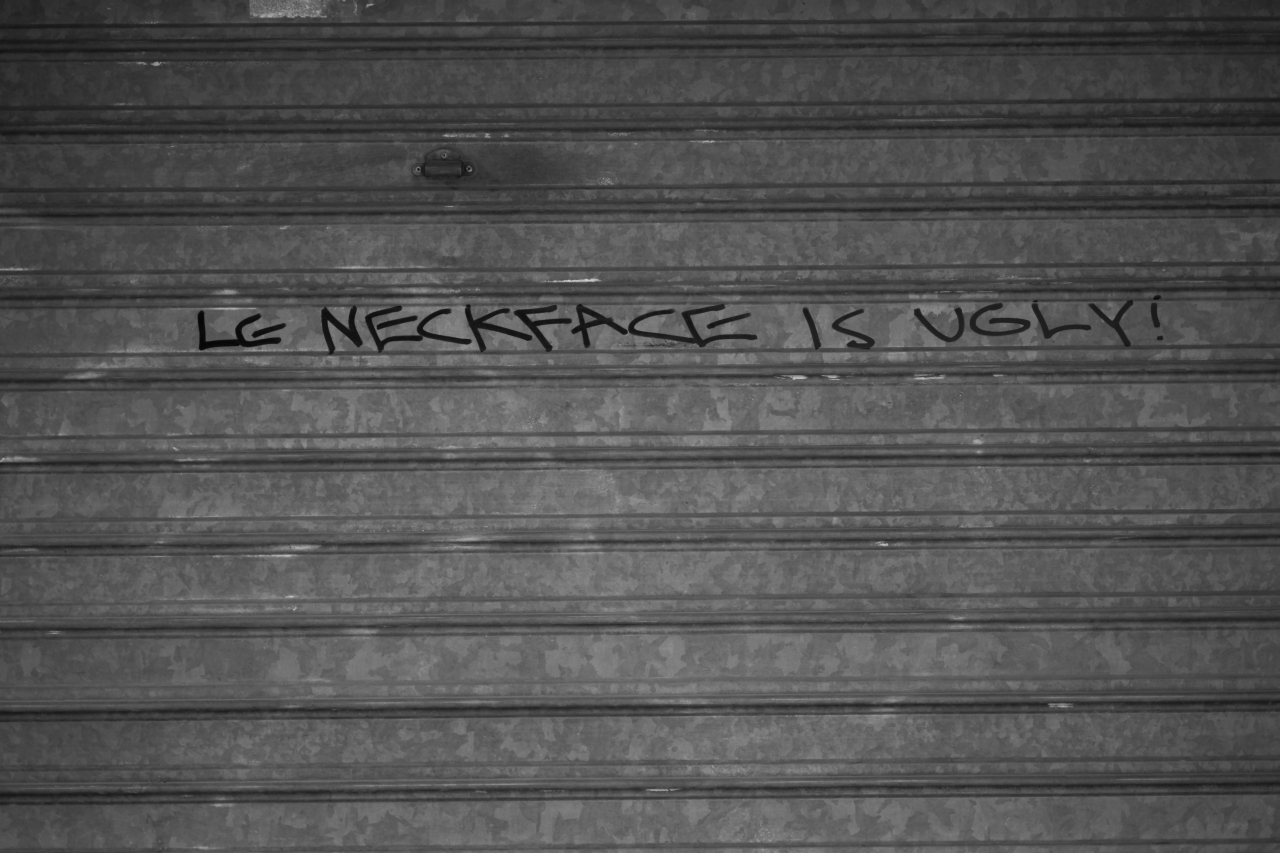 LE NECKFACE IS UGLY!